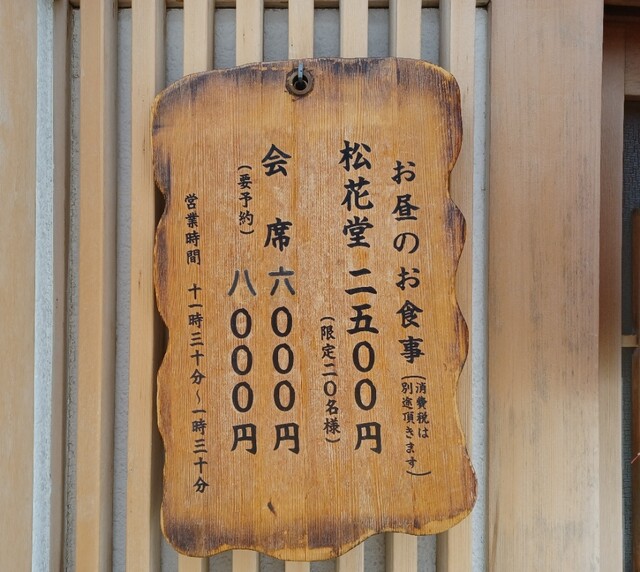 お昼のお食事
(消費税は
別途頂きます)
松花堂 二五〇〇円
(限定二〇名様)
会席 六〇〇〇円
(要予約) 八〇〇〇円
営業時間 十一時三十分～一時三十分